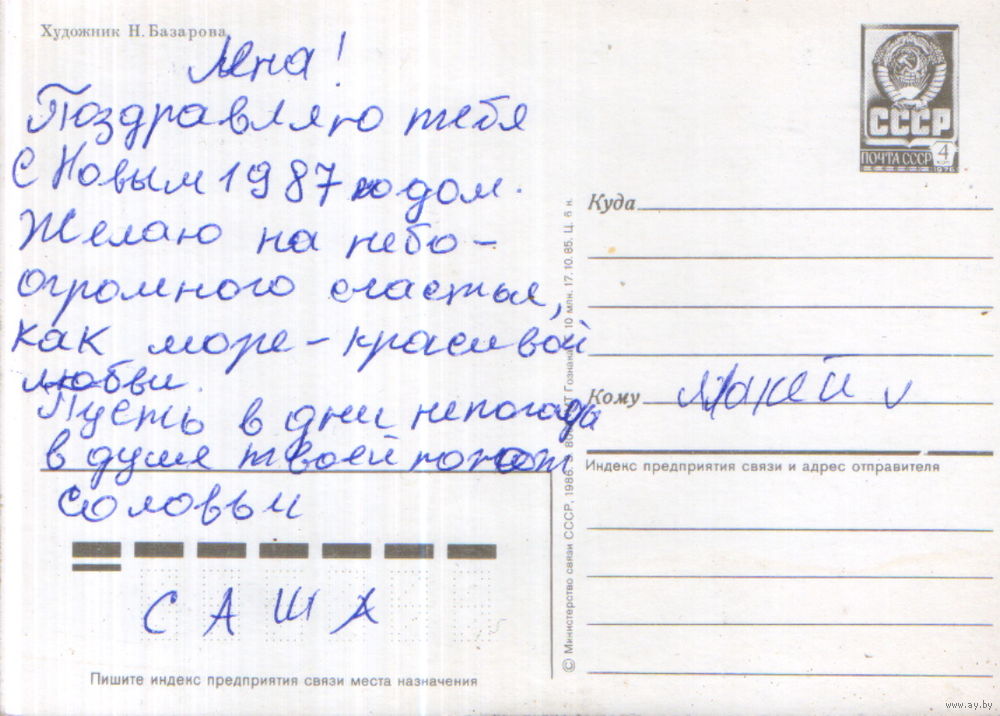 Художник Н. Базарова
Яна!
Поздравляю тебя
с Новым 1987 годом.
Желаю на небо-
огромного счастья,
как море - красивой
любви.
Пусть в дни непогоды
в душе твоей поют
соловьи
САША
Пишите индекс предприятия связи места назначения
© Министерство связи СССР, 1986. Гознака. 10 млн. 17.10.85. Ц. 6 к.
СССР
ПОЧТА СССР 4 коп
1976
Куда
Кому
Индекс предприятия связи и адрес отправителя
www.ay.by